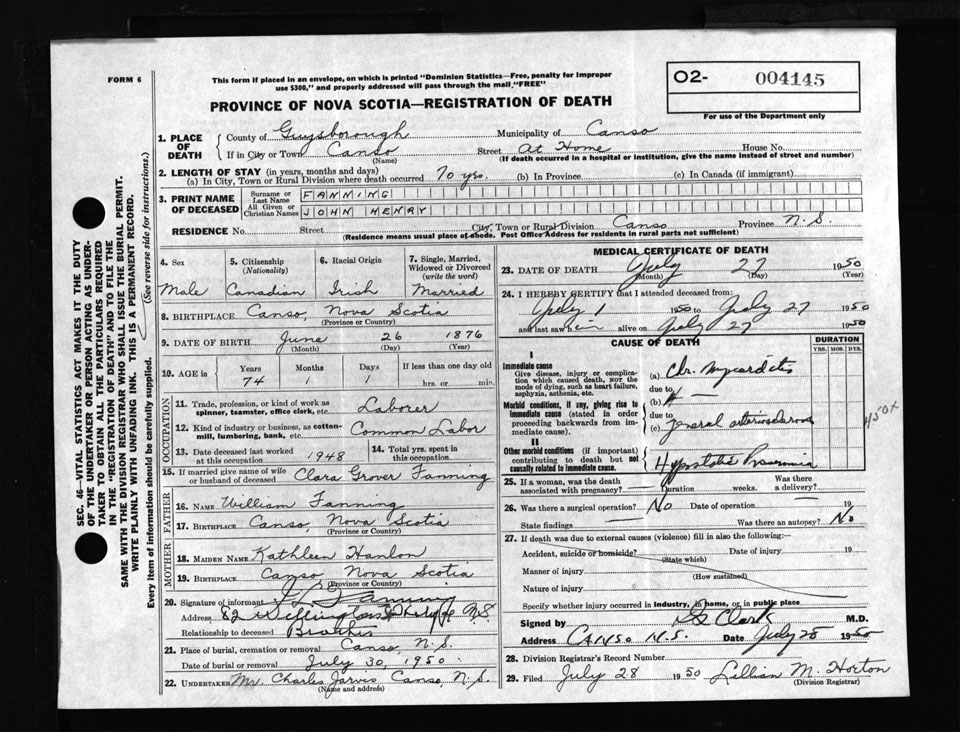 FORM 6
This form if placed in an envelope, on which is printed "Dominion Statistics—Free, penalty for improper
use $300," and properly addressed will pass through the mail, "FREE"
O2- 004145
For use of the Department only
PROVINCE OF NOVA SCOTIA—REGISTRATION OF DEATH
1. PLACE OF DEATH
County of Guysborough Municipality of Canso
If in City or Town Canso Street At Home House No.
(Name) (If death occurred in a hospital or institution, give the name instead of street and number)
2. LENGTH OF STAY (in years, months and days)
(a) In City, Town or Rural Division where death occurred 70 yrs. (b) In Province (c) In Canada (if immigrant)
3. PRINT NAME OF DECEASED
Surname or Last Name FANNING
All Given or Christian Names JOHN HENRY
RESIDENCE No. Street City, Town or Rural Division Canso Province N.S.
(Residence means usual place of abode. Post Office Address for residents in rural parts not sufficient)
4. Sex Male
5. Citizenship (Nationality) Canadian
6. Racial Origin Irish
7. Single, Married, Widowed or Divorced (write the word) Married
8. BIRTHPLACE Canso, Nova Scotia
(Province or Country)
9. DATE OF BIRTH June 26 1876
(Month) (Day) (Year)
10. AGE in Years Months Days If less than one day old
74 1 1 hrs. or min.
OCCUPATION
11. Trade, profession, or kind of work as spinner, teamster, office clerk, etc. Laborer
12. Kind of industry or business, as cotton-mill, lumbering, bank, etc. Common Labor
13. Date deceased last worked at this occupation 1948
14. Total yrs. spent in this occupation
15. If married give name of wife or husband of deceased Clara Grover Fanning
FATHER
16. Name William Fanning
17. BIRTHPLACE Canso, Nova Scotia
(Province or Country)
MOTHER
18. MAIDEN NAME Kathleen Hanlon
19. BIRTHPLACE Canso Nova Scotia
(Province or Country)
20. Signature of informant Fanning
Address 82 N.S.
Relationship to deceased Brother
21. Place of burial, cremation or removal Canso, N.S.
Date of burial or removal July 30, 1950.
22. UNDERTAKER Mr. Charles Jarvis Canso, N.S.
(Name and address)
MEDICAL CERTIFICATE OF DEATH
23. DATE OF DEATH July 27 1950
(Month) (Day) (Year)
24. I HEREBY CERTIFY that I attended deceased from:
July 1 1950 to July 27 1950
and last saw him alive on July 27 1950
CAUSE OF DEATH
DURATION
YRS. MOS. DYS.
I
Immediate cause
Give disease, injury or complication which caused death, NOT the mode of dying, such as heart failure, asphyxia, asthenia, etc.
(a) Chr. Myocarditis
due to
(b)
Morbid conditions, if any, giving rise to immediate cause (stated in order proceeding backwards from immediate cause).
due to
(c) General arteriosclerosis
450X
II
Other morbid conditions (if important) contributing to death but not causally related to immediate cause.
Hypostatic Pneumonia
25. If a woman, was the death associated with pregnancy? Duration weeks. Was there a delivery?
26. Was there a surgical operation? No Date of operation 19
State findings Was there an autopsy? No
27. If death was due to external causes (violence) fill in also the following:
Accident, suicide or homicide? Date of injury 19
(State which)
Manner of injury
(How sustained)
Nature of injury
Specify whether injury occurred in industry, in home, or in public place
Signed by Clark M.D.
Address CANSO N.S. Date July 28 1950
28. Division Registrar's Record Number
29. Filed July 28 1950 Lillian M. Horton
(Division Registrar)
SEC. 46—VITAL STATISTICS ACT MAKES IT THE DUTY
OF THE UNDERTAKER OR PERSON ACTING AS UNDER-
TAKER TO OBTAIN ALL THE PARTICULARS REQUIRED
IN THE "REGISTRATION OF DEATH" AND TO FILE THE
SAME WITH THE DIVISION REGISTRAR WHO SHALL ISSUE THE BURIAL PERMIT.
WRITE PLAINLY WITH UNFADING INK. THIS IS A PERMANENT RECORD.
Every item of information should be carefully supplied. (See reverse side for instructions.)